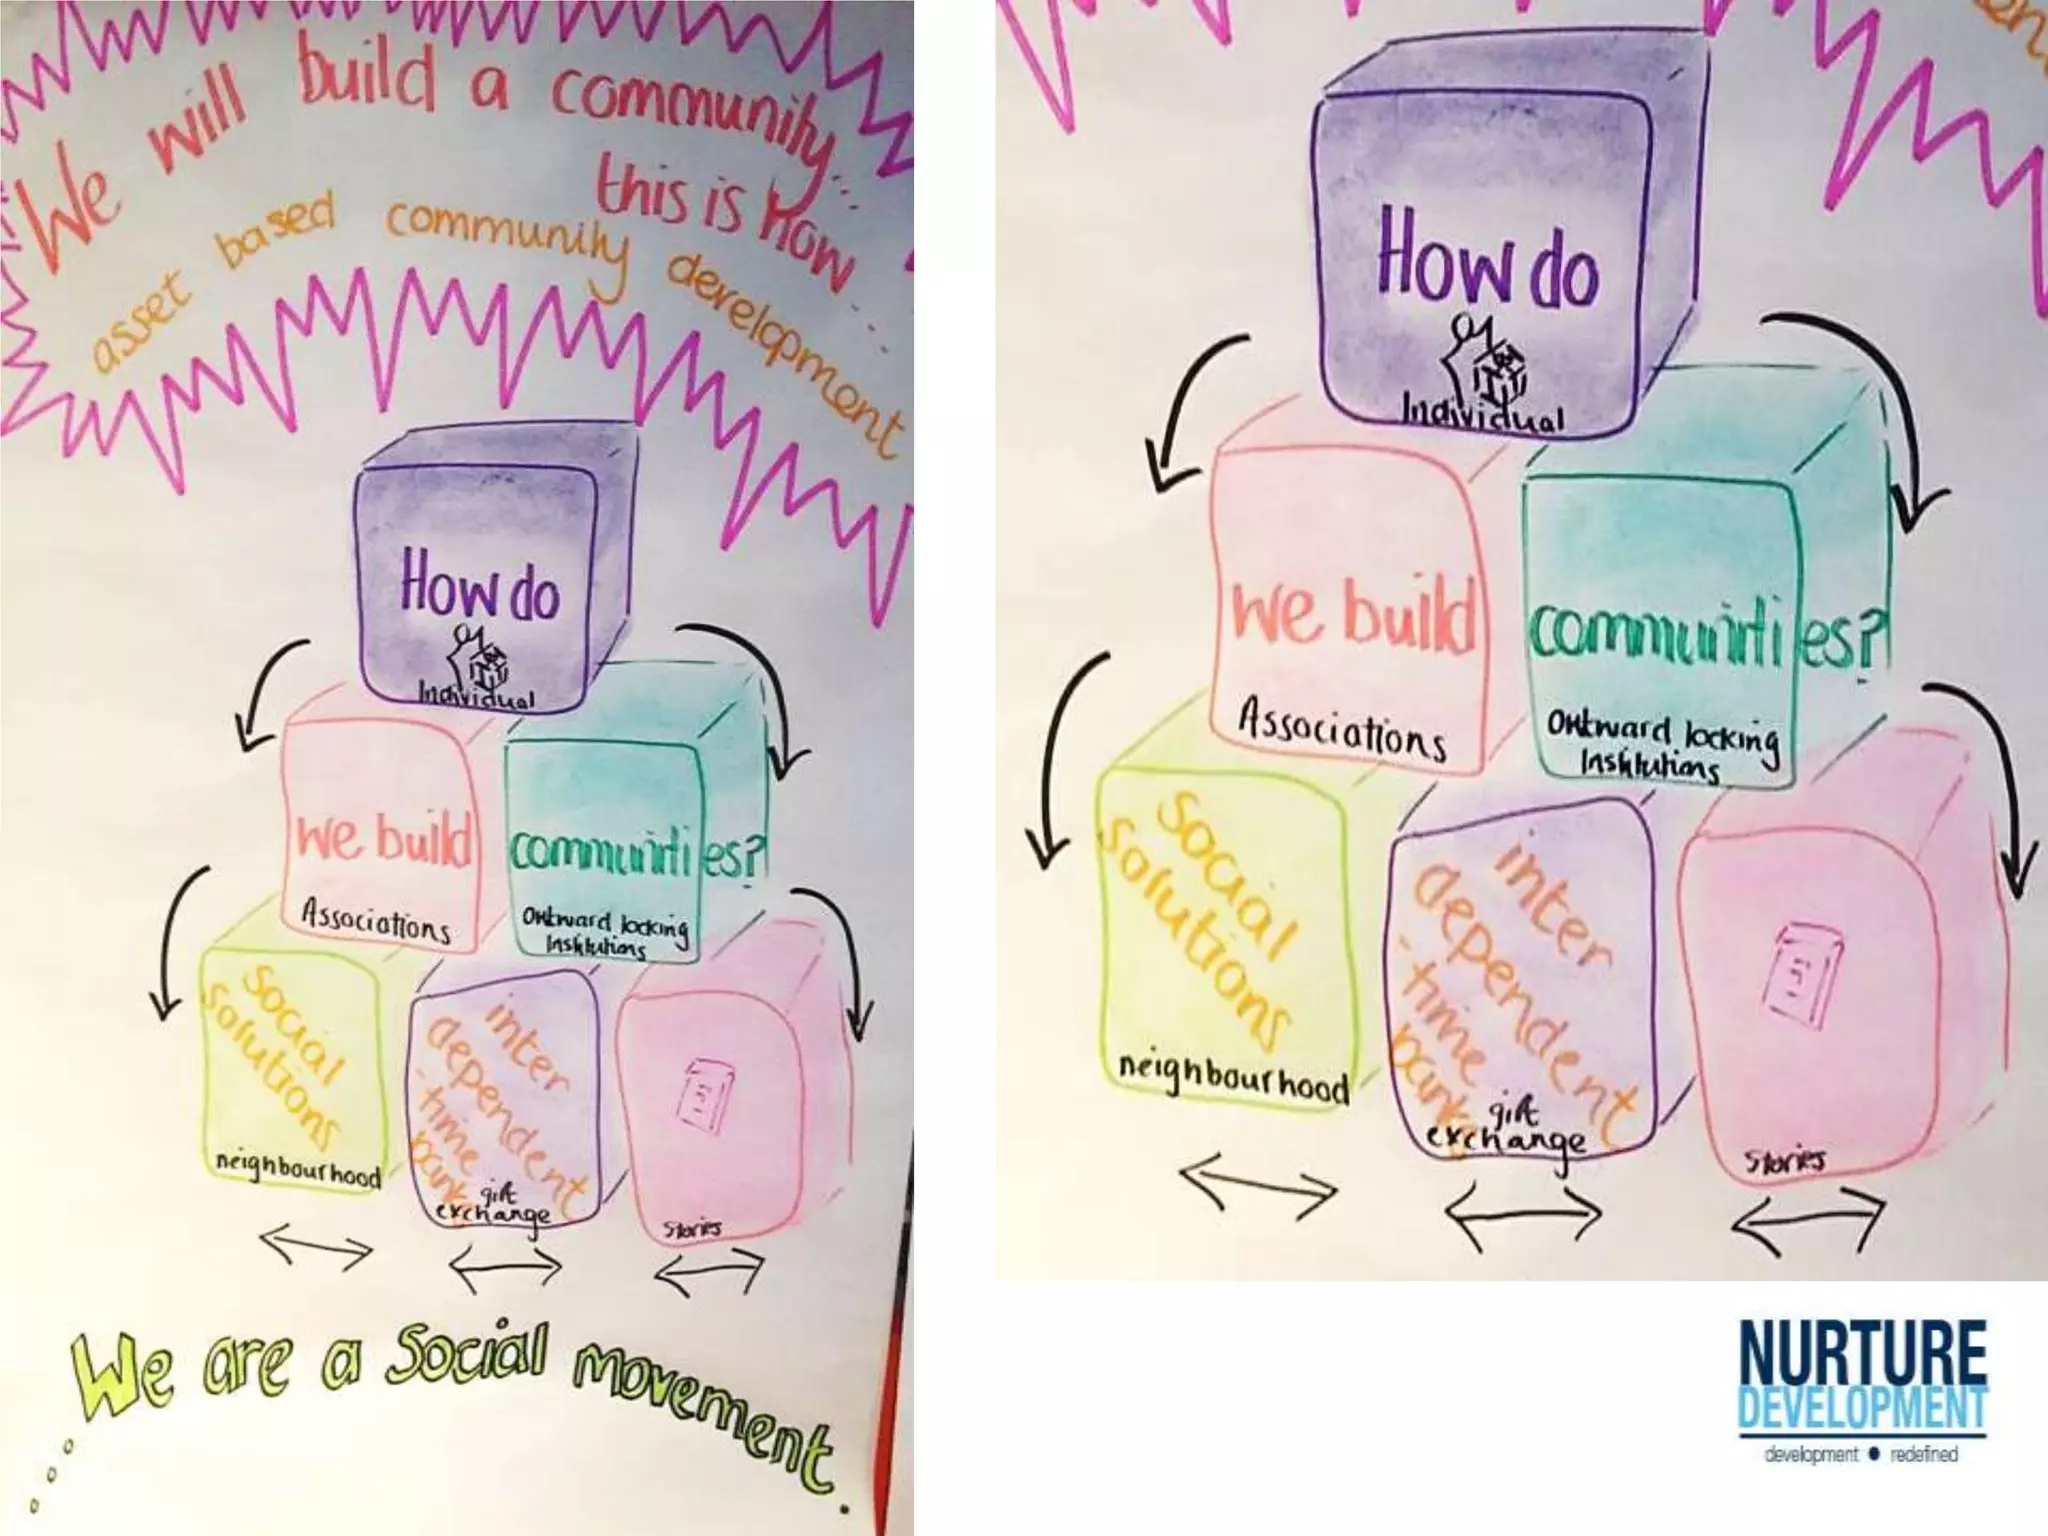 We will build a community...
this is how....
asset based community development
How do
Individual
we build
communities?
Associations
Outward looking
Institutions
social
solutions
neighbourhood
inter
dependent
-time
banks
gift
exchange
Stories
...We are a social movement.
en
How do
Individual
we build
communities?
Associations
Outward looking
Institutions
social
solutions
neighbourhood
inter
dependent
-time
banks
gift
exchange
Stories
NURTURE
DEVELOPMENT
development • redefined